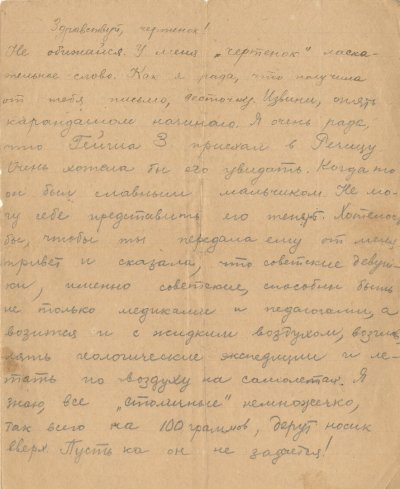 Здравствуй, чертенок!
Не обижайся. У меня „чертенок" ласка-
тельное слово. Как я рада, что получила
от тебя письмо, весточку. Извини, опять
карандашом начинаю. Я очень рада,
что Гейша З приехал в Речицу
Очень хотела бы его увидать. Когда-то
он был славным мальчиком. Не мо-
гу себе представить его теперь. Хотелось
бы, чтобы ты передала ему от меня
привет и сказала, что советские девуш-
ки, именно советские, способны быть
не только медиками и педагогами, а
возится и с жидким воздухом, возглав
лять геологические экспедиции и ле-
тать по воздуху на самолетах. Я
знаю, все „столичные" немножечко,
так всего на 100 граммов, дерут носик
вверх. Пусть-ка он не задается!